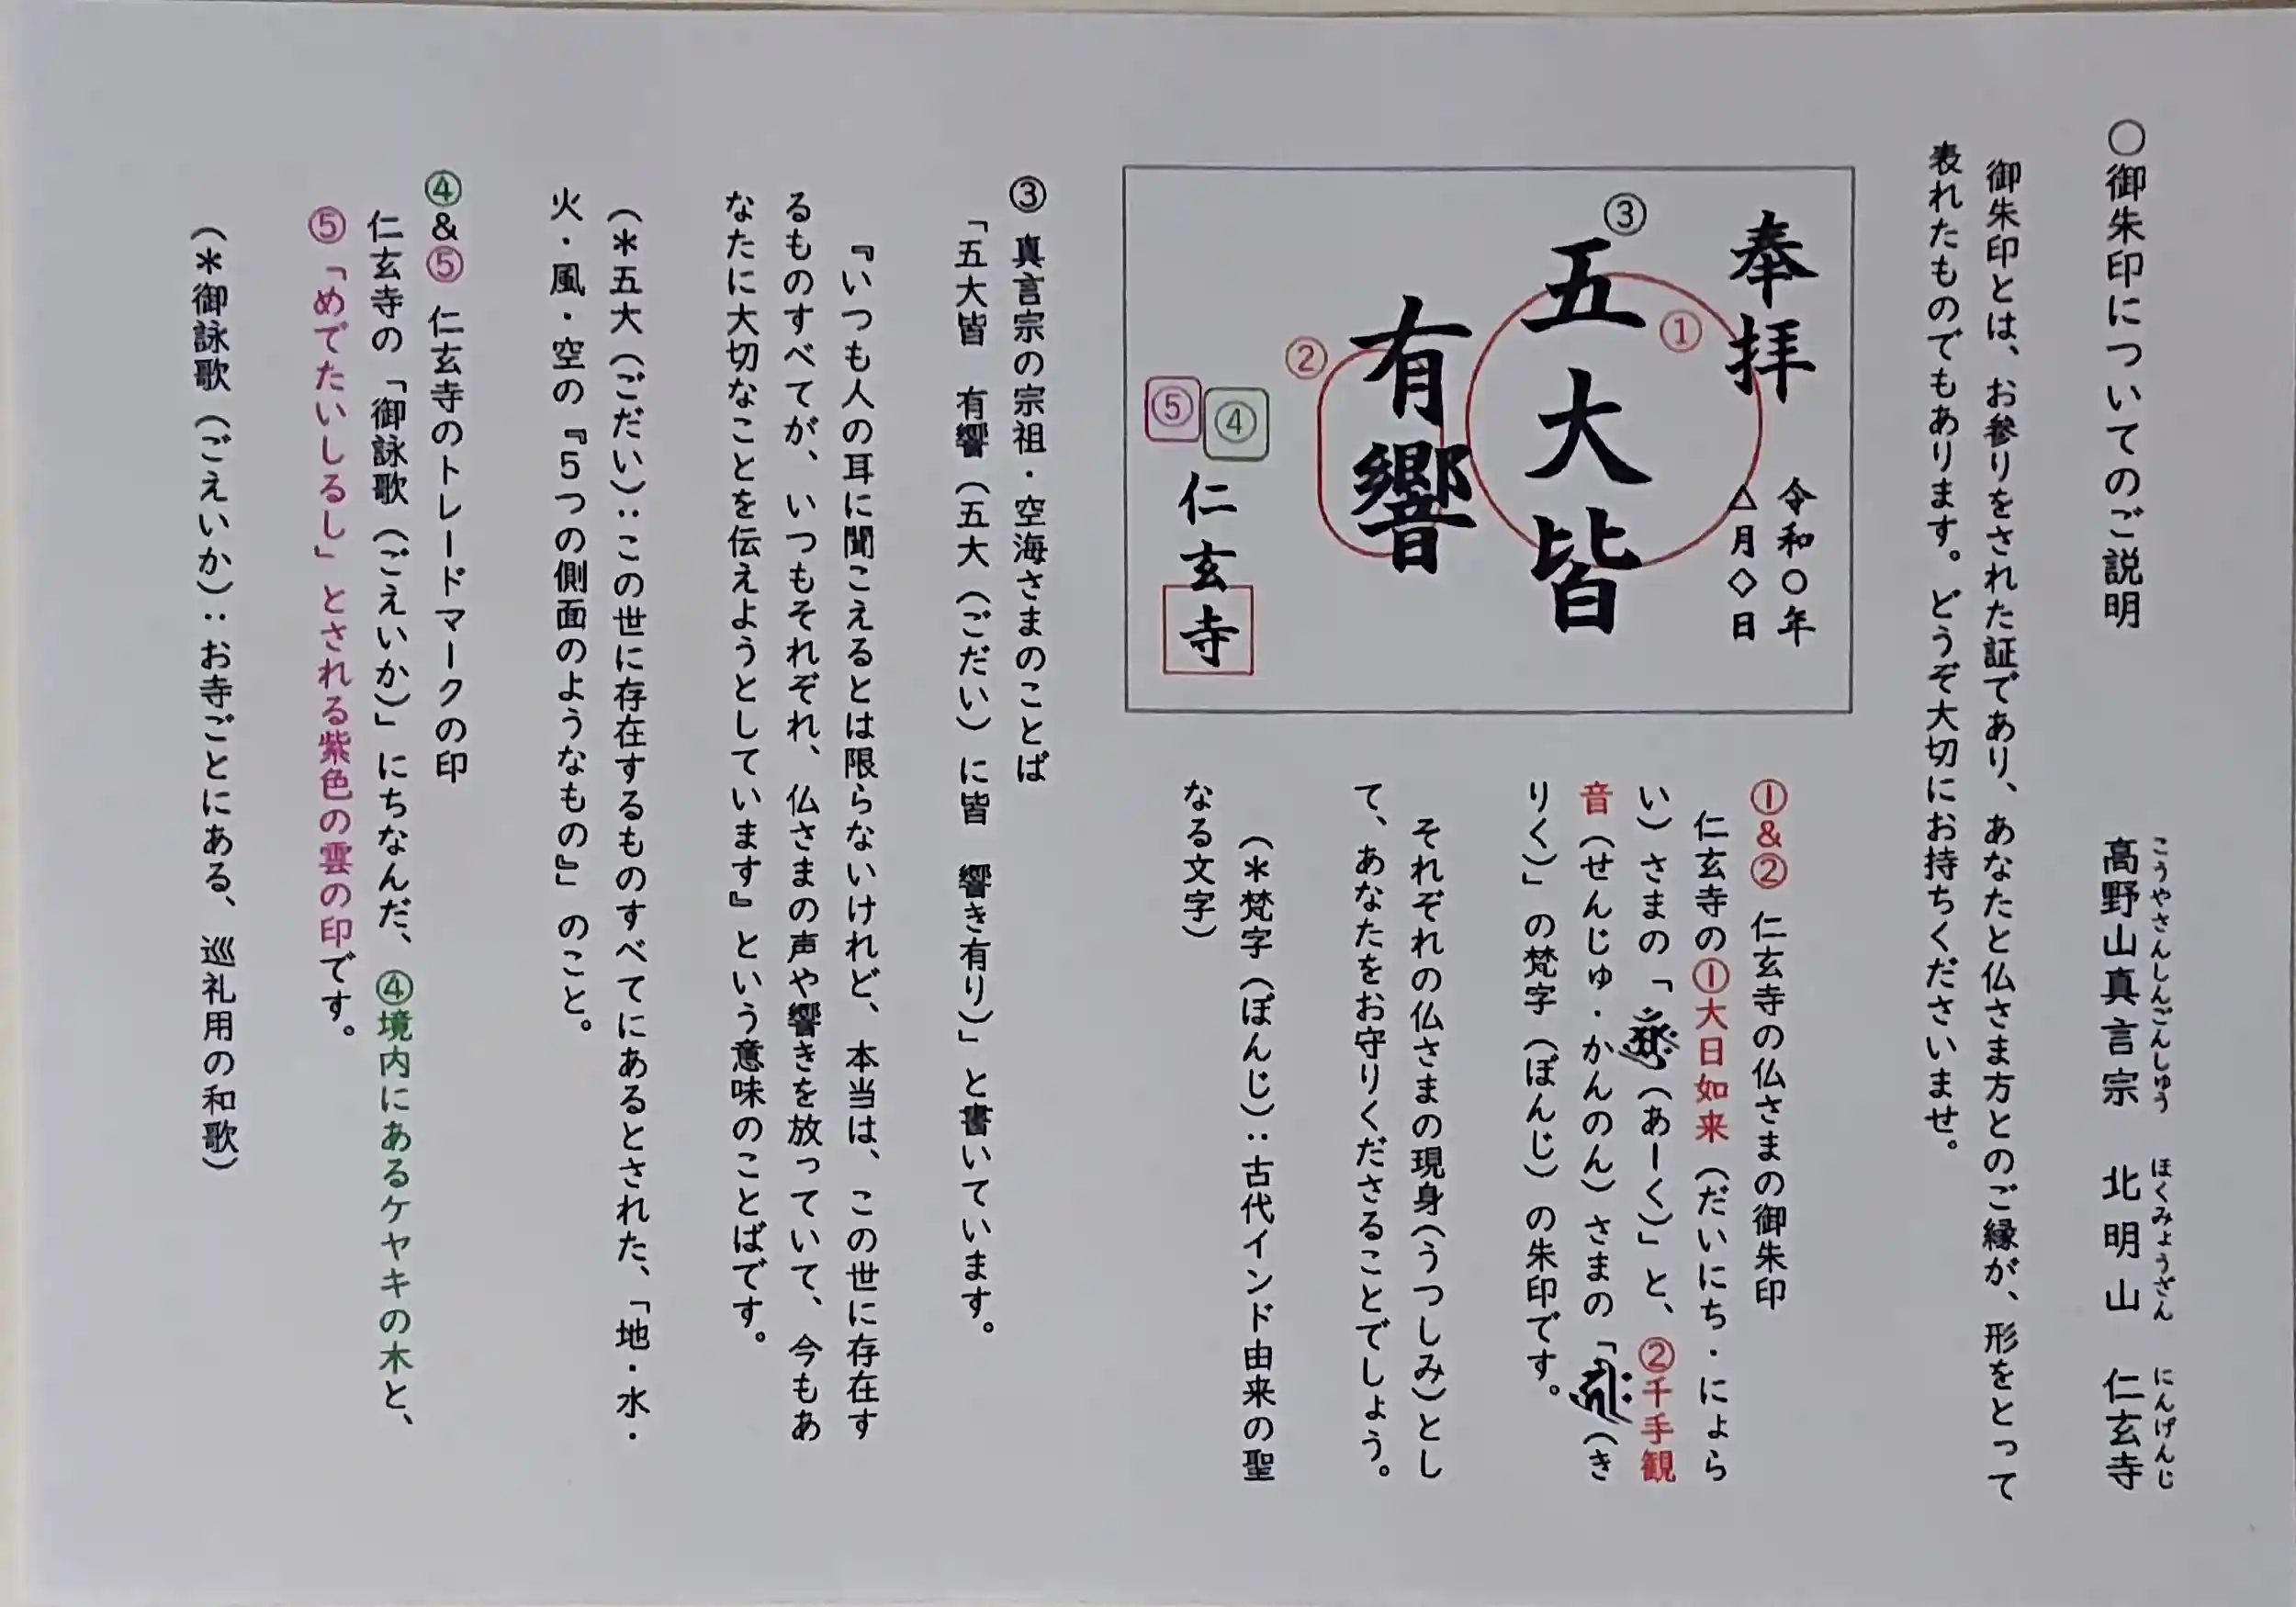 ○御朱印についてのご説明
高野山真言宗　北明山　仁玄寺
こうやさんしんごんしゅう　ほくみょうざん　にんげんじ
御朱印とは、お参りをされた証であり、あなたと仏さま方とのご縁が、形をとって
表れたものでもあります。どうぞ大切にお持ちくださいませ。
奉拝
令和○年
△月◇日
③
五大皆
①
有響
②
④
⑤
仁玄寺
①&② 仁玄寺の仏さまの御朱印
仁玄寺の①大日如来（だいにち・にょら
い）さまの「（あーく）」と、②千手観
音（せんじゅ・かんのん）さまの「（き
りく）」の梵字（ぼんじ）の朱印です。
それぞれの仏さまの現身（うつしみ）とし
て、あなたをお守りくださることでしょう。
（＊梵字（ぼんじ）：古代インド由来の聖
なる文字）
③ 真言宗の宗祖・空海さまのことば
「五大皆　有響（五大（ごだい）に皆　響き有り）」と書いています。
『いつも人の耳に聞こえるとは限らないけれど、本当は、この世に存在す
るものすべてが、いつもそれぞれ、仏さまの声や響きを放っていて、今もあ
なたに大切なことを伝えようとしています』という意味のことばです。
（＊五大（ごだい）：この世に存在するものすべてにあるとされた、「地・水・
火・風・空の『５つの側面のようなもの』」のこと。
④&⑤ 仁玄寺のトレードマークの印
仁玄寺の「御詠歌（ごえいか）」にちなんだ、④境内にあるケヤキの木と、
⑤「めでたいしるし」とされる紫色の雲の印です。
（＊御詠歌（ごえいか）：お寺ごとにある、巡礼用の和歌）